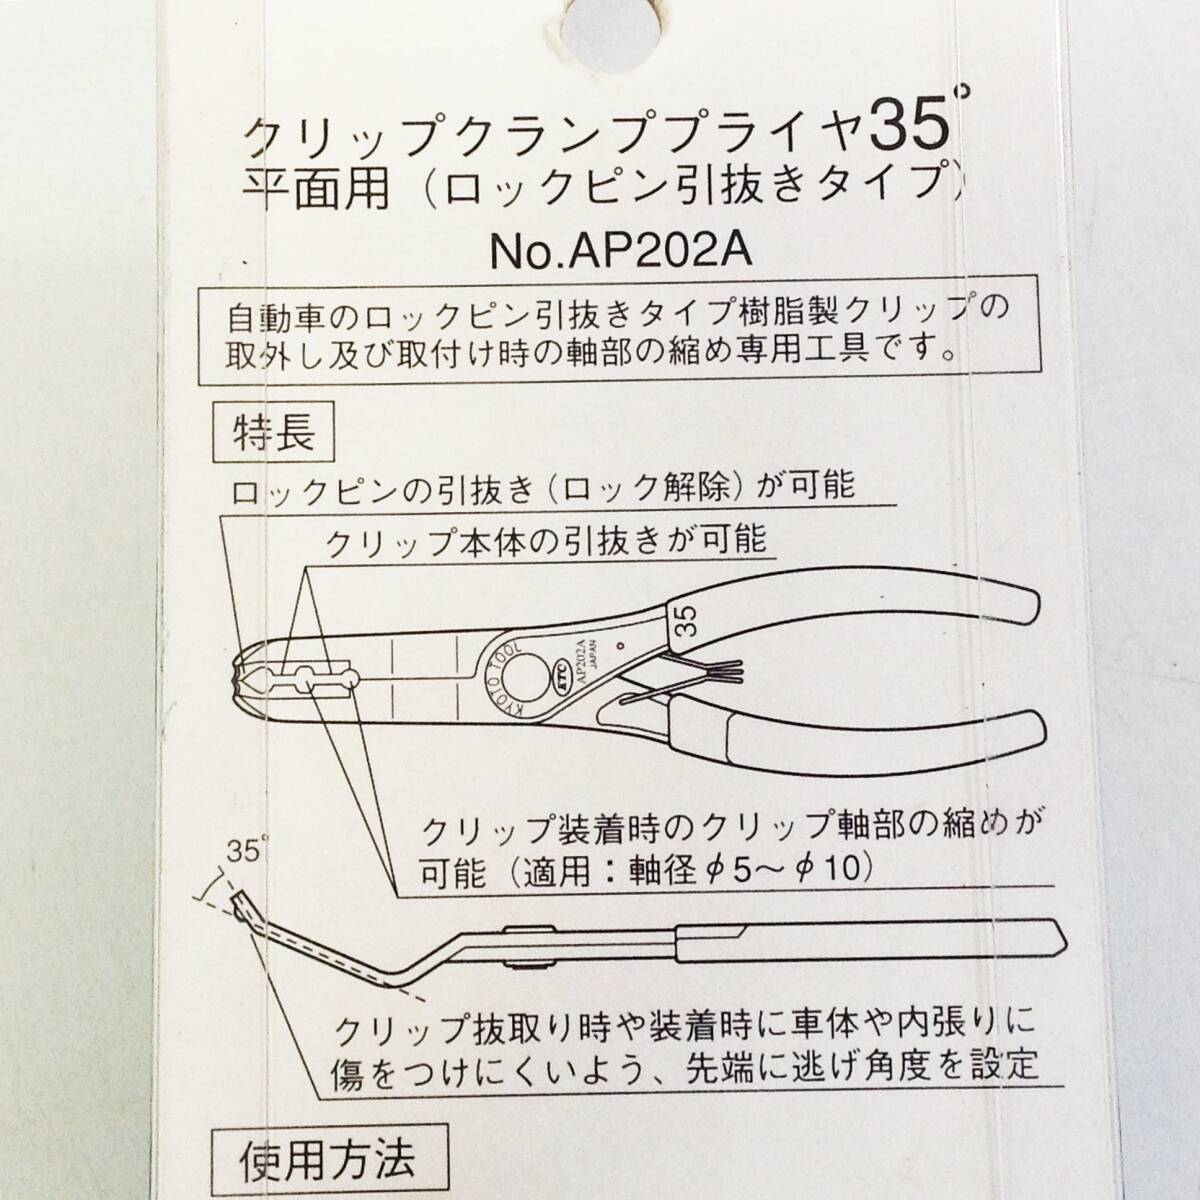 クリップクランププライヤ35°
平面用（ロックピン引抜きタイプ）
No.AP202A
自動車のロックピン引抜きタイプ樹脂製クリップの
取外し及び取付け時の軸部の縮め専用工具です。
特長
ロックピンの引抜き（ロック解除）が可能
クリップ本体の引抜きが可能
35
KYOTO TOOL
KTC
AP202A
JAPAN
クリップ装着時のクリップ軸部の縮めが
可能（適用：軸径φ5～φ10）
35°
クリップ抜取り時や装着時に車体や内張りに
傷をつけにくいよう、先端に逃げ角度を設定
使用方法